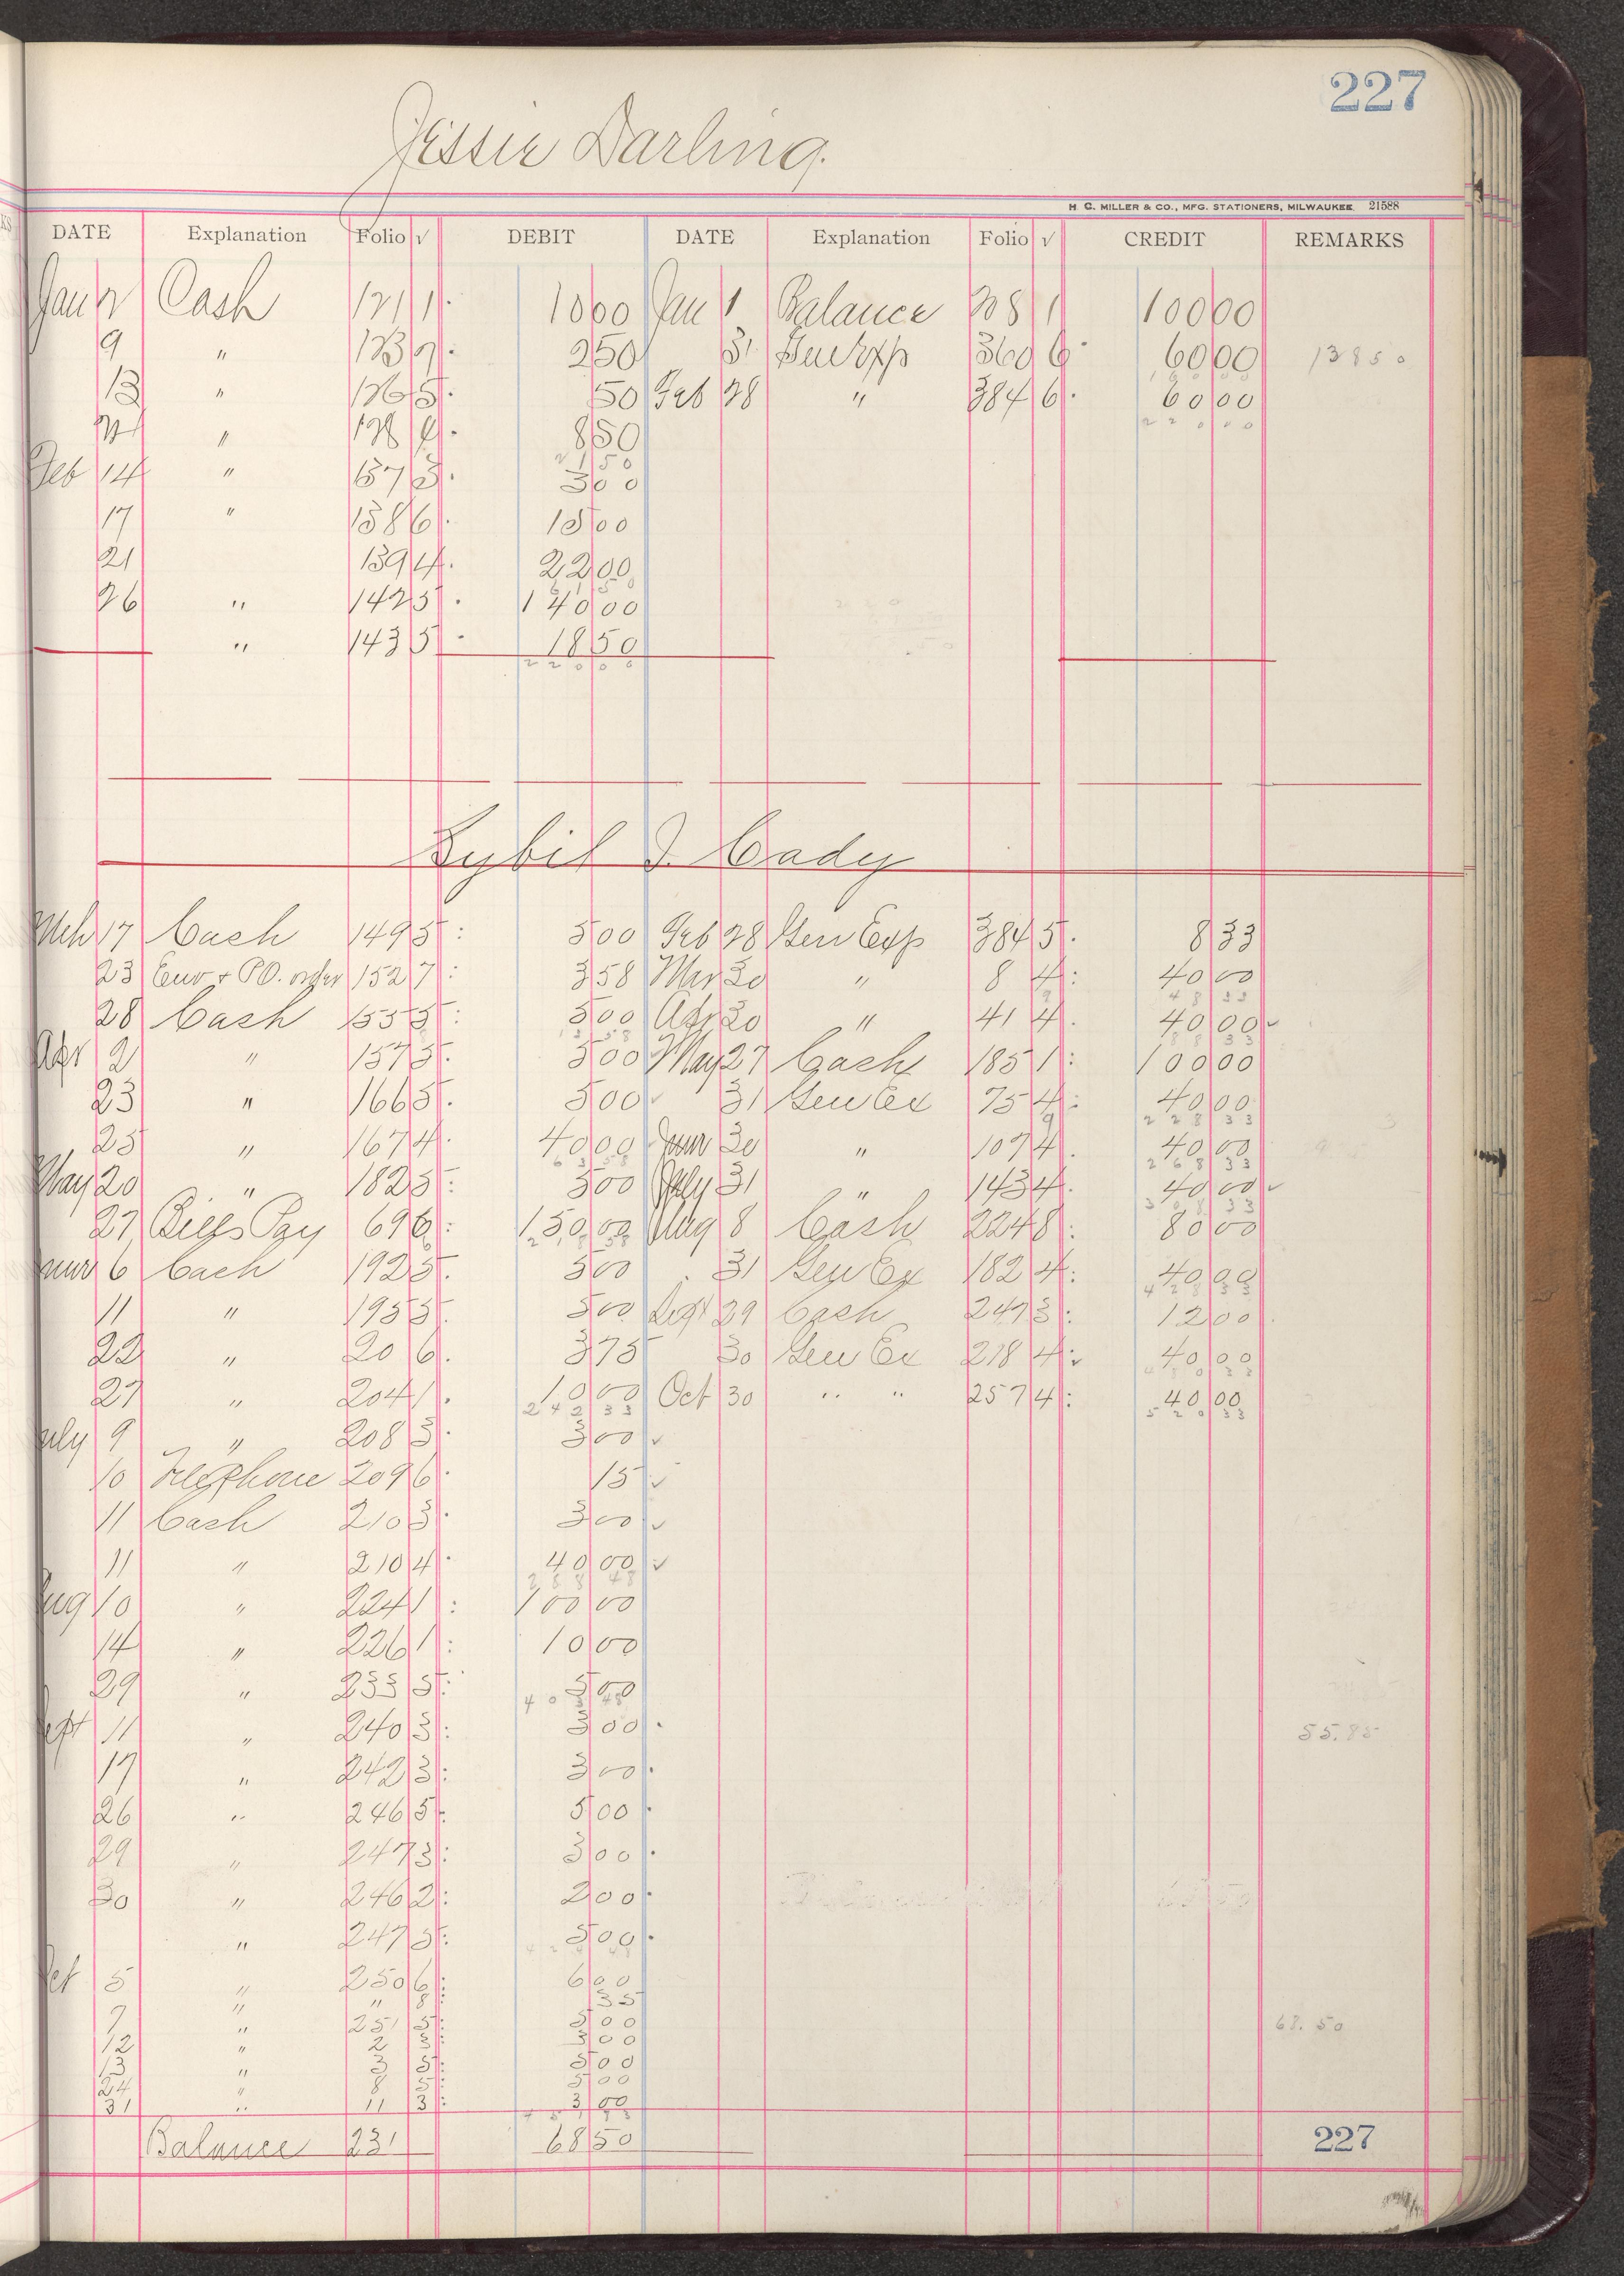 227
Jessie Darling.
H. C. MILLER & CO., MFG. STATIONERS, MILWAUKEE 21588
DATE Explanation Folio √ DEBIT DATE Explanation Folio √ CREDIT REMARKS
Jan Cash 121 1 10 00 Jan 1 Balance 208 1 100 00
9 " 2 50 31 Gen Exp 360 6 60 00 138 50
13 " 126 5 50 Feb 28 " 384 6 60 00
" 8 50 220 00
21 50
Feb 14 " 137 3 3 00
17 " 138 6 18 00
21 139 4 22 00
26 " 142 5 140 00
" 143 5 18 50
220 00
Sybil J. Cady
Mch 17 Cash 149 5 5 00 Feb 28 Gen Exp 384 5 8 33
23 Env + P.O. order 152 7 3 58 Mar 30 " 8 4 40 00
48 33
28 Cash 155 5 5 00 Apr 30 " 41 4 40 00
13 58 88 33
Apr 2 " 157 5 5 00 May 27 Cash 185 1 100 00
23 " 166 5 5 00 31 Gen Ex 75 4 40 00
228 33
25 " 167 4 40 00 June 30 " 107 4 40 00
63 58 268 33
May 20 " 182 5 5 00 July 31 " 143 4 40 00
308 33
27 Bills Pay 69 6 150 00 Aug 8 Cash 224 8 80 00
June 6 Cash 192 5 5 00 31 Gen Ex 182 4 40 00
428 33
11 " 195 5 5 00 Sept 29 Cash 247 3 12 00
22 " 201 6 3 75 30 Gen Ex 218 4 40 00
480 33
27 " 204 1 10 00 Oct 30 " " 257 4 40 00
242 33 520 33
July 9 " 208 3 3 00
10 Telephone 209 6 15
11 Cash 210 3 3 00
11 " 210 4 40 00
288 48
Aug 10 " 224 1 100 00
14 " 226 1 10 00
29 " 233 5 5 00
403 48
Sept 11 " 240 3 3 00 55.85
17 " 242 3 3 00
26 " 246 5 5 00
29 " 247 3 3 00
30 " 246 2 2 00
" 247 5 5 00
Oct 5 " 250 6 6 00
" " 8 35
7 " 251 5 5 00 68.50
12 " 2 3 3 00
13 " 3 5 5 00
24 " 8 5 5 00
31 " 11 3 3 00
Balance 231 68 50
227